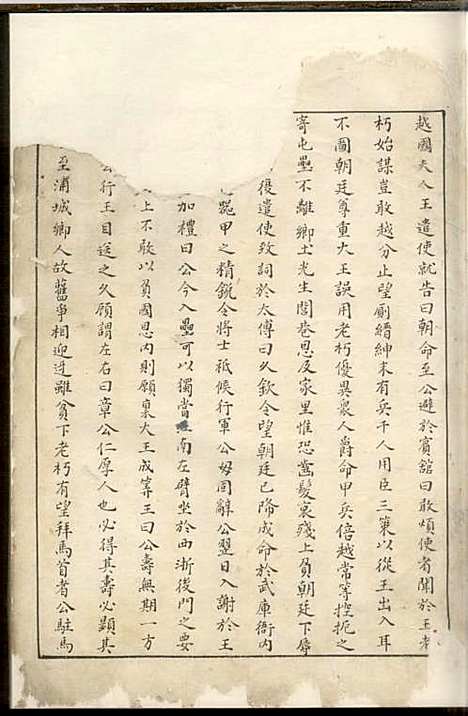 越國夫人王遣使就告曰朝命至公避於賓舘曰敢煩使者聞於王老
朽始謀豈敢越分止望廁縉紳末有兵千人用臣三策以從王出入耳
不圖朝廷尊重大王誤用老朽優異衆人爵命甲兵倍越常等控扼之
寄屯壘不離鄉土光生閭巷恩及家里惟恐齒髮衰殘上負朝廷下辱
復遣使致詞於太傅曰久欽令望朝廷已降成命於武庫衙內
器甲之精銳令將士祗候行軍公毋固辭公翌日入謝於王
加禮曰公今入壘可以獨當一南左臂坐於西浙後門之要
上不敢以負國恩內則願裹大王成筭王曰公壽無期一方
公行王目送之久顧謂左右曰章公仁厚人也必得其壽必顯其
至浦城鄉人故舊爭相迎迓雖貧下老朽有望拜馬首者公駐馬